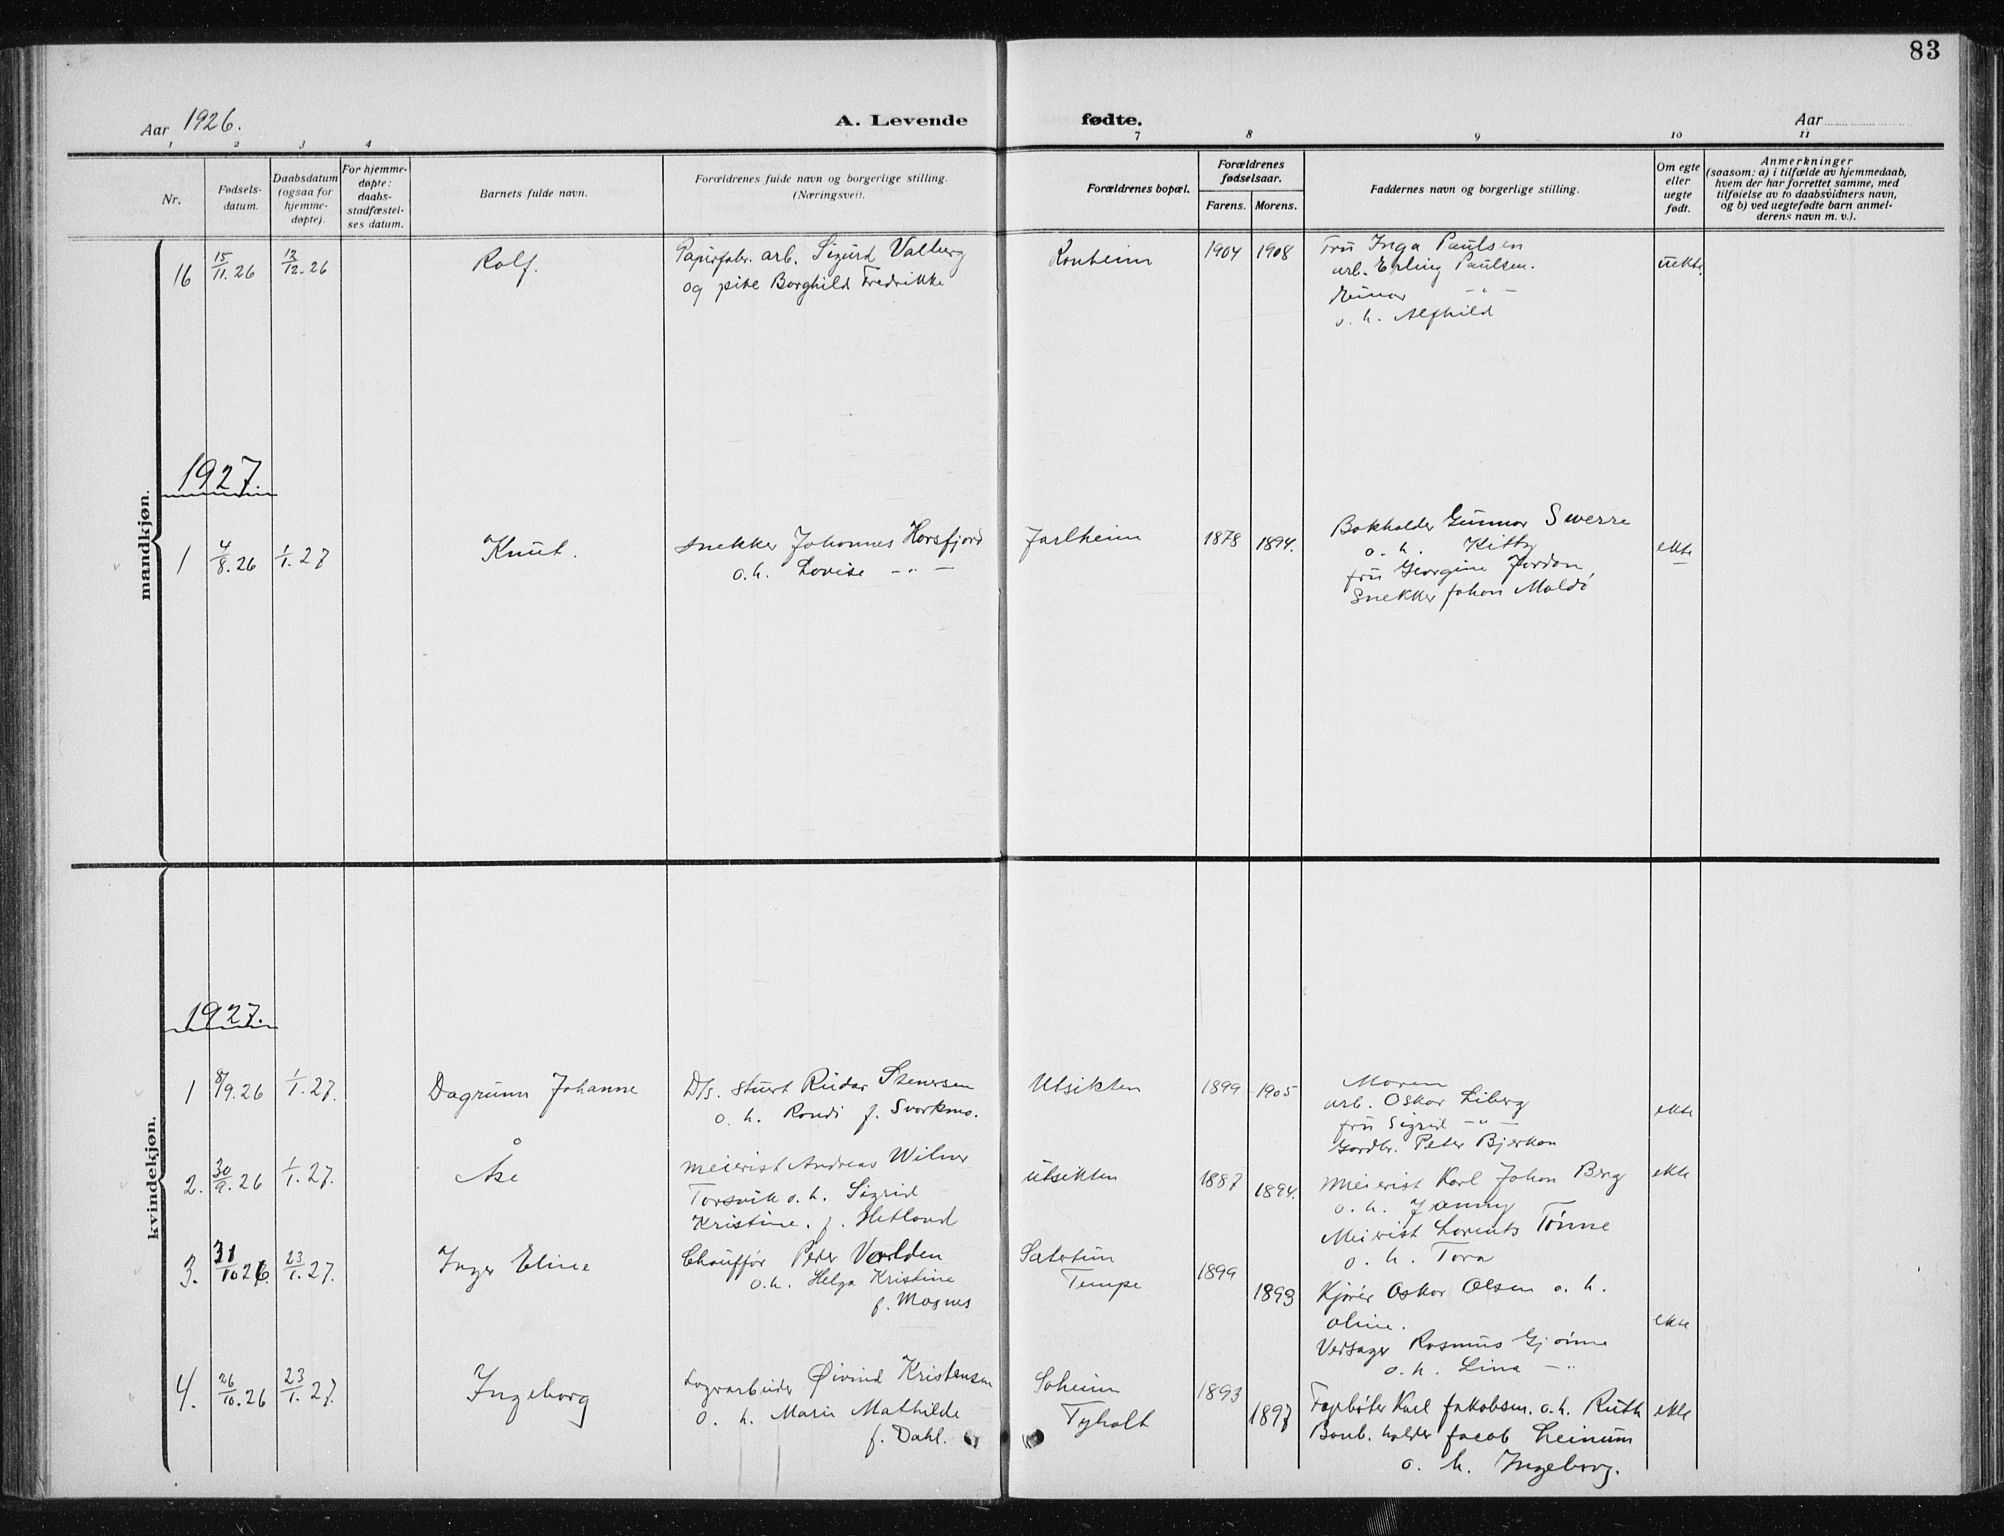 83
Aar 1926.
A. Levende fødte.
Aar
1 2 3 4 7 8 9 10 11
Nr.
Fødsels-
datum.
Daabsdatum
(ogsaa for
hjemme-
døpte).
For hjemme-
døpte:
daabs-
stadfæstel-
ses datum.
Barnets fulde navn.
Forældrenes fulde navn og borgerlige stilling.
(Næringsvei).
Forældrenes bopæl.
Forældrenes
fødselsaar.
Farens. Morens.
Faddernes navn og borgerlige stilling.
Om egte
eller
uegte
født.
Anmerkninger
(saasom: a) i tilfælde av hjemmedaab,
hvem der har forrettet samme, med
tilføielse av to daabsvidners navn,
og b) ved uegtefødte barn anmel-
derens navn m. v.).
mandkjøn.
16 15/11.26 12/12.26 Rolf.
Papirfabr. arb. Sigurd Valberg
og pike Borghild Fredrikke
Ronheim
1904 1908
Fru Inga Paulsen
arb. Erling Paulsen.
Einar -"-
o. h. Alfhild
uekte.
1927.
1 4/8.26 1/1.27 Knut.
Snekker Johannes Horsfjord
o.h. Lovise -"-
Jarlheim
1878 1894.
Bokholder Gunnar Swerre
o. h. Kitty
fru Georgine Jordan,
Snekker Johan Moldö
ekte
kvindekjøn.
1927.
1 8/9.26 1/1.27. Dagrunn Johanne
D/s. stuert Reidar Stenersen
o. h. Rondi f. Svorkmo.
Utsikten
1899 1905
Moren
arb. Oskar Liberg
fru Sigrid -"-
Gardbr. Peter Bjerkan
ekte
2. 30/9.26 1/1.27. Åse
Meierist Andreas Wilner
Torsvik o. h. Sigrid
Kristine. f. Hetland
Utsikten
1887 1894.
Meierist Karl Johan Berg
o. h. Jenny
Meierist Lorents Tønne
o. h. Tora
ekte
3. 31/10.26. 23/1.27. Inger Eline
Chauffør Peder Vorlden
o.h. Helga Kristine
f. Magnus
Sætertun
Tempe
1899 1893
Kjører Oskar Olsen o. h.
Oline.
Versager Rasmus Gjønne
o.h. Lina -"-
ekte
4. 26/10.26 23/1.27. Ingeborg
Lagerarbeider Øivind Kristensen
o. h. Marie Mathilde
f. Dahl.
Solheim
Tyholt
1893 1897
Fagbøter Karl Jakobsen. o.h. Ruth
Bankholder Jacob Leinum
o. h. Ingeborg.
ekte